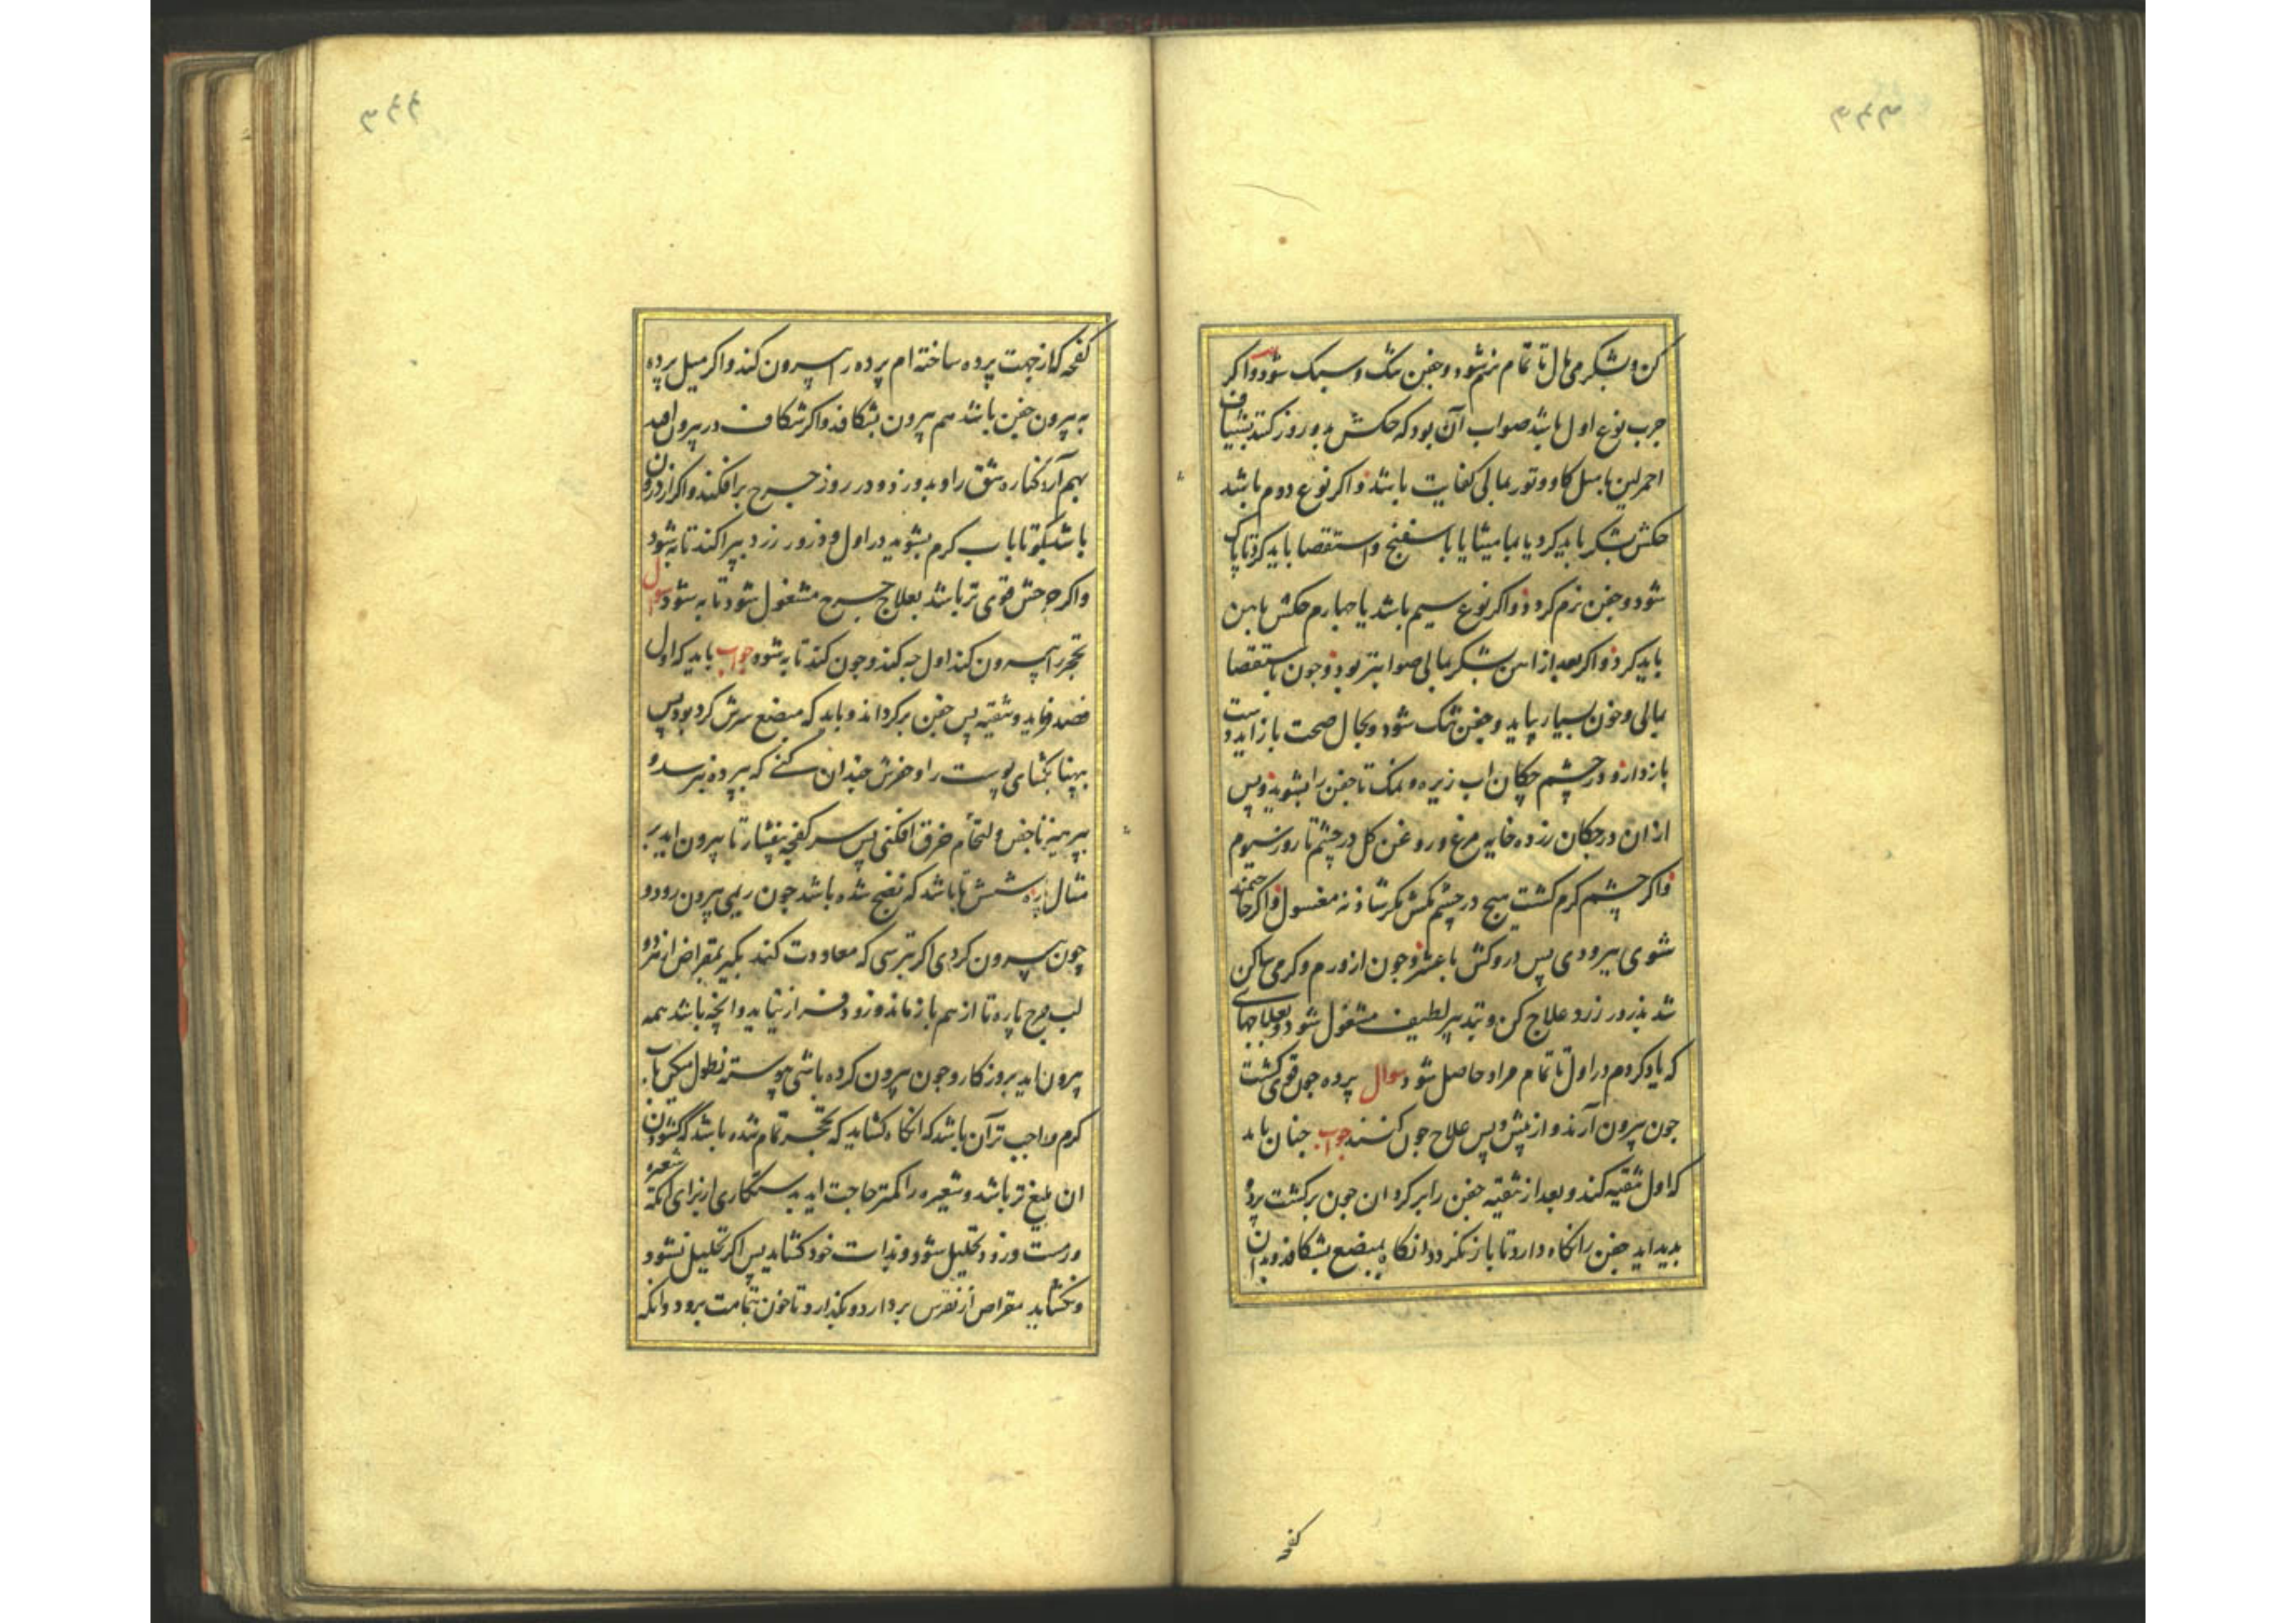 کن و بشکر می مال تا تمام نرم شود و جفن تنک و سبک شود و اکر
جرب نوع اول باشد صواب آن بود که حکش بدو روز کنند بشیاف
احمر لین با میل کاو و تور بمالی کفایت باشد و اکر نوع دوم باشد
حکش بشکر باید کرد یا بمامیثا یا باسفنج و استقصا باید کرد تا پاک
شود و جفن نرم کردد و اکر نوع سیم باشد یا جهارم حکش باهن
باید کرد و اکر بعد از اهن بشکر بمالی صوابتر بود و جون باستقصا
بمالی و خون بسیار بیاید و جفن تنک شود و بحال صحت باز اید دست
بازدار و در چشم چکان اب زیره و نمک تا جفن را بشوید و پس
از ان در جکان زرده خایه مرغ و روغن کل در چشم تا روز سیوم
و اکر چشم کرم کشت هیچ در چشم مکش مکر شادنه مغسول و اکر حاجتمند
شوی ببرودی پس درو کش باعتبر و جون از ورم و کرمی ساکن
شد بذرور زرد علاج کن و بتدبیر لطیف مشغول شود و بعلاجهای
که یاد کردم در اول تا تمام مراد حاصل شود سوال پرده جون قوی کشت
جون بیرون آرند و از پیش و پس علاج جون کنند جواب جنان باید
که اول تنقیه کند و بعد از تنقیه جفن را بر کردان جون بر کشت پرده
بدید اید جفن را نکاه دارد تا باز نکردد انکاه بمبضع بشکافد و بدان
کفچه
کفچه که از جهت پرده ساخته ام پرده را بیرون کند و اکر میل پرده
به بیرون جفن باشد هم بیرون بشکافد و اکر شکاف در بیرون افتد
بهم آرد کناره شق را و بدوزد و درروز جرح برافکند و اکر از درون
باشد بکو تا باب کرم بشوید در اول و ذرور زرد بپراکند تا به شود
و اکر جرحش قوی تر باشد بعلاج جرح مشغول شود تا به شود سوال
تحجر را بیرون کند اول جه کند و جون کند تا به شود جواب باید که اول
فصد فرماید و تنقیه پس جفن برکرداند و باید که مبضع سرش کرد بود پس
بپهنا بکشای پوست را و حفرش چندان کنی که ببرده نرسد و
بپرهیز تا جفن و لتحام خرق افکنی پس سر کفچه بفشار تا بیرون اید بر
مثال پاره شش تا باشد که نضج شده باشد جون ریمی بیرون رود و
چون بیرون کردی اکر ترسی که معاودت کند بکیر بمقراض از هر دو
لب جرح پاره تا از هم باز ماند و زود فراز نیاید و انچه باشد همه
بیرون اید بروزکار و جون بیرون کرده باشی پیوسته نطول میکن باب
کرم و واجب تر آن باشد که انکاه کشاید که تحجر تمام شده باشد که کشودن
ان بلیغ تر باشد و شعیره را کمتر حاجت اید بدستکاری از برای انکه شعیره
ورمست و زود تحلیل شود و بذات خود کشاید پس اکر تحلیل نشود
و نکشاید بمقراض از نفرس بردارد و بکذارد تا خون بتمامت برود و انکه